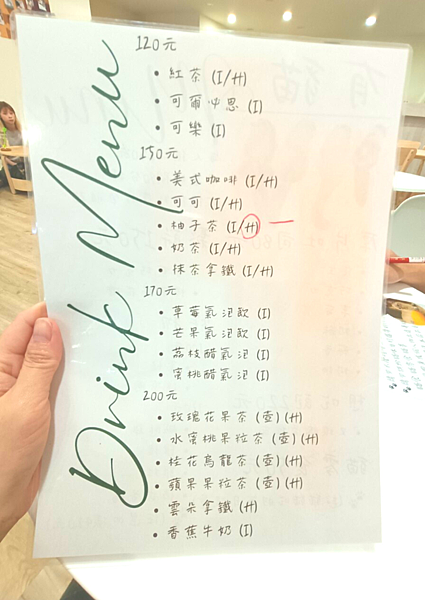 Drink Menu
120元
• 紅茶 (I/H)
• 可爾必思 (I)
• 可樂 (I)
150元
• 美式咖啡 (I/H)
• 可可 (I/H)
• 柚子茶 (I/H) —
• 奶茶 (I/H)
• 抹茶拿鐵 (I/H)
170元
• 草莓氣泡飲 (I)
• 芒果氣泡飲 (I)
• 荔枝醋氣泡 (I)
• 蜜桃醋氣泡 (I)
200元
• 玫瑰花果茶 (壺) (H)
• 水蜜桃果粒茶 (壺) (H)
• 桂花烏龍茶 (壺) (H)
• 蘋果果粒茶 (壺) (H)
• 雲朵拿鐵 (H)
• 香蕉牛奶 (I)